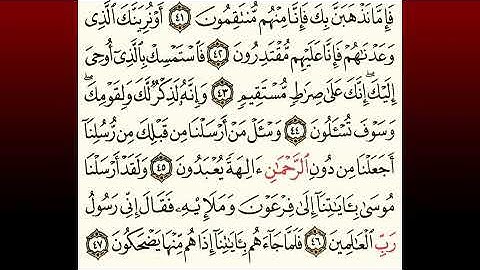 فَإِمَّا نَذْهَبَنَّ بِكَ فَإِنَّا مِنْهُم مُّنتَقِمُونَ ٤١ أَوْ نُرِيَنَّكَ الَّذِى
وَعَدْنَٰهُمْ فَإِنَّا عَلَيْهِم مُّقْتَدِرُونَ ٤٢ فَاسْتَمْسِكْ بِالَّذِىٓ أُوحِىَ
إِلَيْكَ ۖ إِنَّكَ عَلَىٰ صِرَٰطٍ مُّسْتَقِيمٍ ٤٣ وَإِنَّهُۥ لَذِكْرٌ لَّكَ وَلِقَوْمِكَ ۖ
وَسَوْفَ تُسْـَٔلُونَ ٤٤ وَسْـَٔلْ مَنْ أَرْسَلْنَا مِن قَبْلِكَ مِن رُّسُلِنَآ
أَجَعَلْنَا مِن دُونِ الرَّحْمَٰنِ ءَالِهَةً يُعْبَدُونَ ٤٥ وَلَقَدْ أَرْسَلْنَا
مُوسَىٰ بِـَٔايَٰتِنَآ إِلَىٰ فِرْعَوْنَ وَمَلَإِي۟هِۦ فَقَالَ إِنِّى رَسُولُ
رَبِّ الْعَٰلَمِينَ ٤٦ فَلَمَّا جَآءَهُم بِـَٔايَٰتِنَآ إِذَا هُم مِّنْهَا يَضْحَكُونَ ٤٧